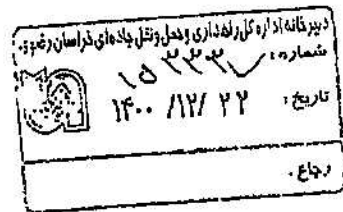 دبیرخانه اداره کل راهداری و حمل و نقل جاده‌ای خراسان رضوی
شماره: ۱۵۳۳۷
تاریخ: ۱۴۰۰/۱۲/۲۲
رجاع.